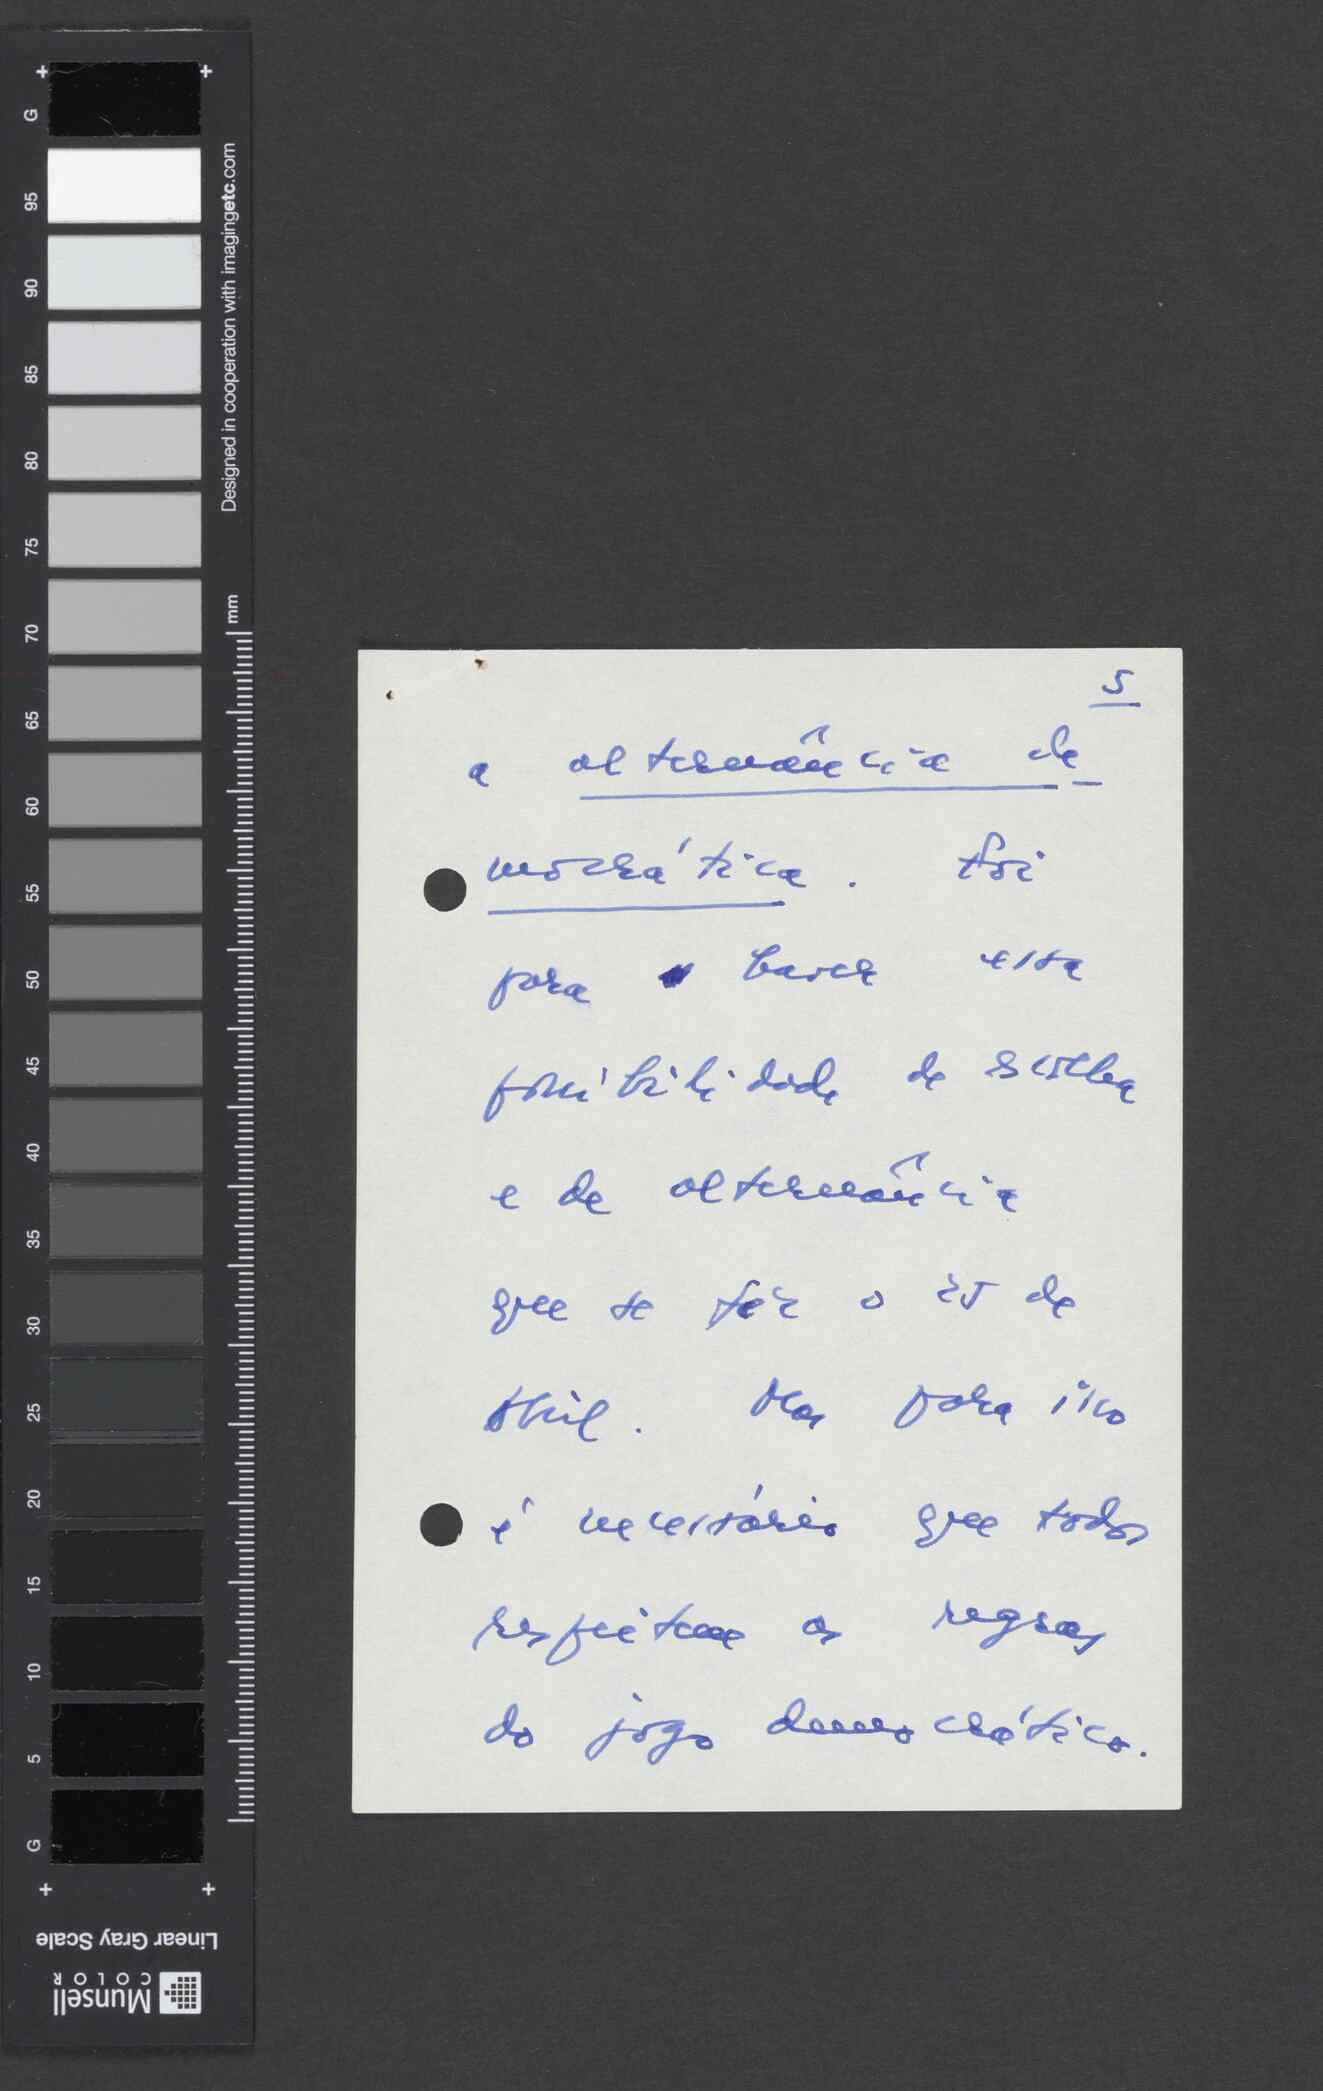 G
95
90
85
80
75
70
65
60
55
50
45
40
35
30
25
20
15
10
5
G
Designed in cooperation with imagingetc.com
mm
Linear Gray Scale
Munsell
COLOR
5
a alternância de-
mocrática. Foi
para haver esta
possibilidade de escolha
e de alternância
que se fez o 25 de
Abril. Mas para isso
é necessário que todos
respeitem as regras
do jogo democrático.